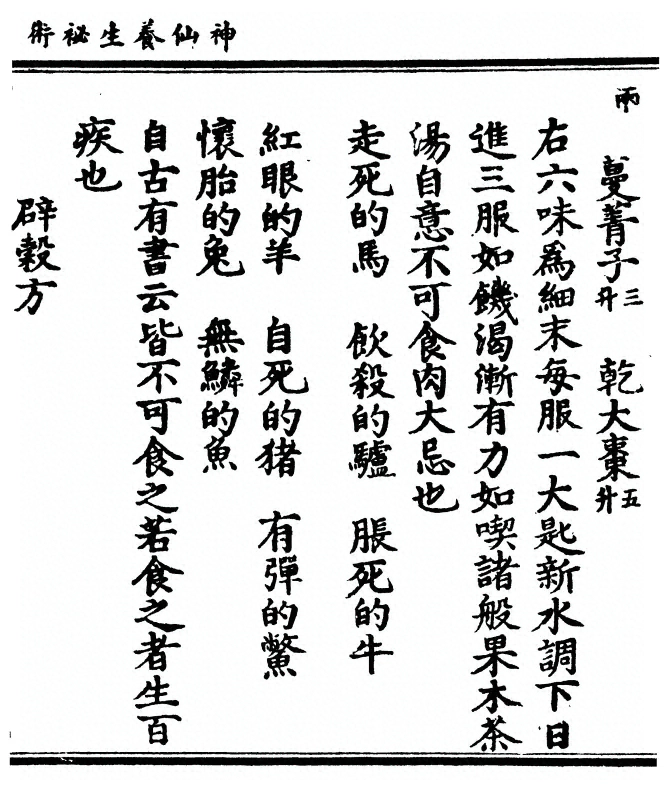 神仙養生祕術
兩
蔓菁子三升 乾大棗五升
右六味爲細末每服一大匙新水調下日
進三服如饑渴漸有力如喫諸般果木茶
湯自意不可食肉大忌也
走死的馬 飲殺的驢 脹死的牛
紅眼的羊 自死的猪 有彈的鱉
懷胎的兔 無鱗的魚
自古有書云皆不可食之若食之者生百
疾也
辟穀方